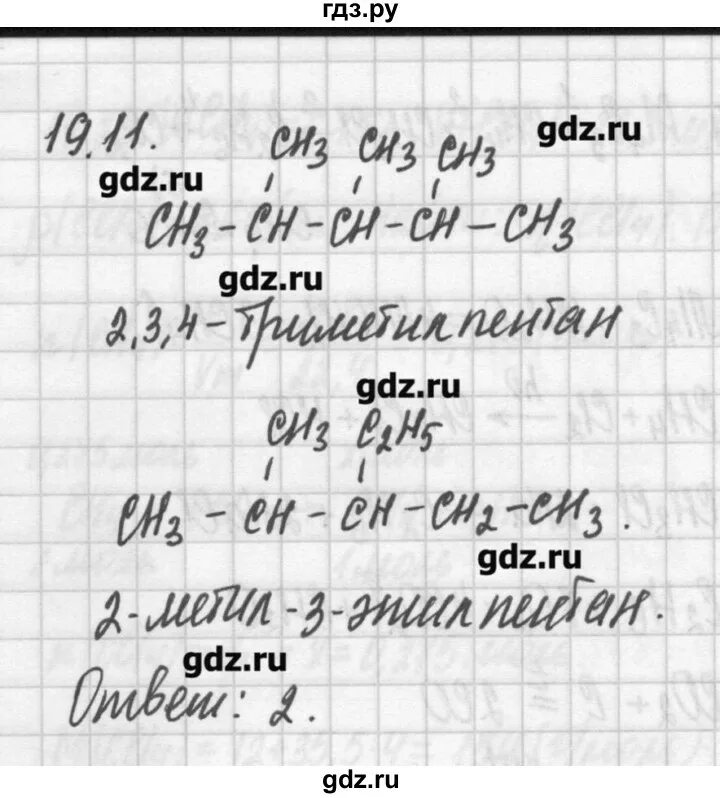 гдз.ру
19.11.
CH3 CH3 CH3
gdz.ru
gdz.ru
CH3 - CH - CH - CH - CH3
gdz.ru
2,3,4 - триметилпентан
gdz.ru
CH3 C2H5
CH3 - CH - CH - CH2 - CH3.
gdz.ru
2-метил-3-этилпентан.
gdz.ru
Ответ: 2.
gdz.ru